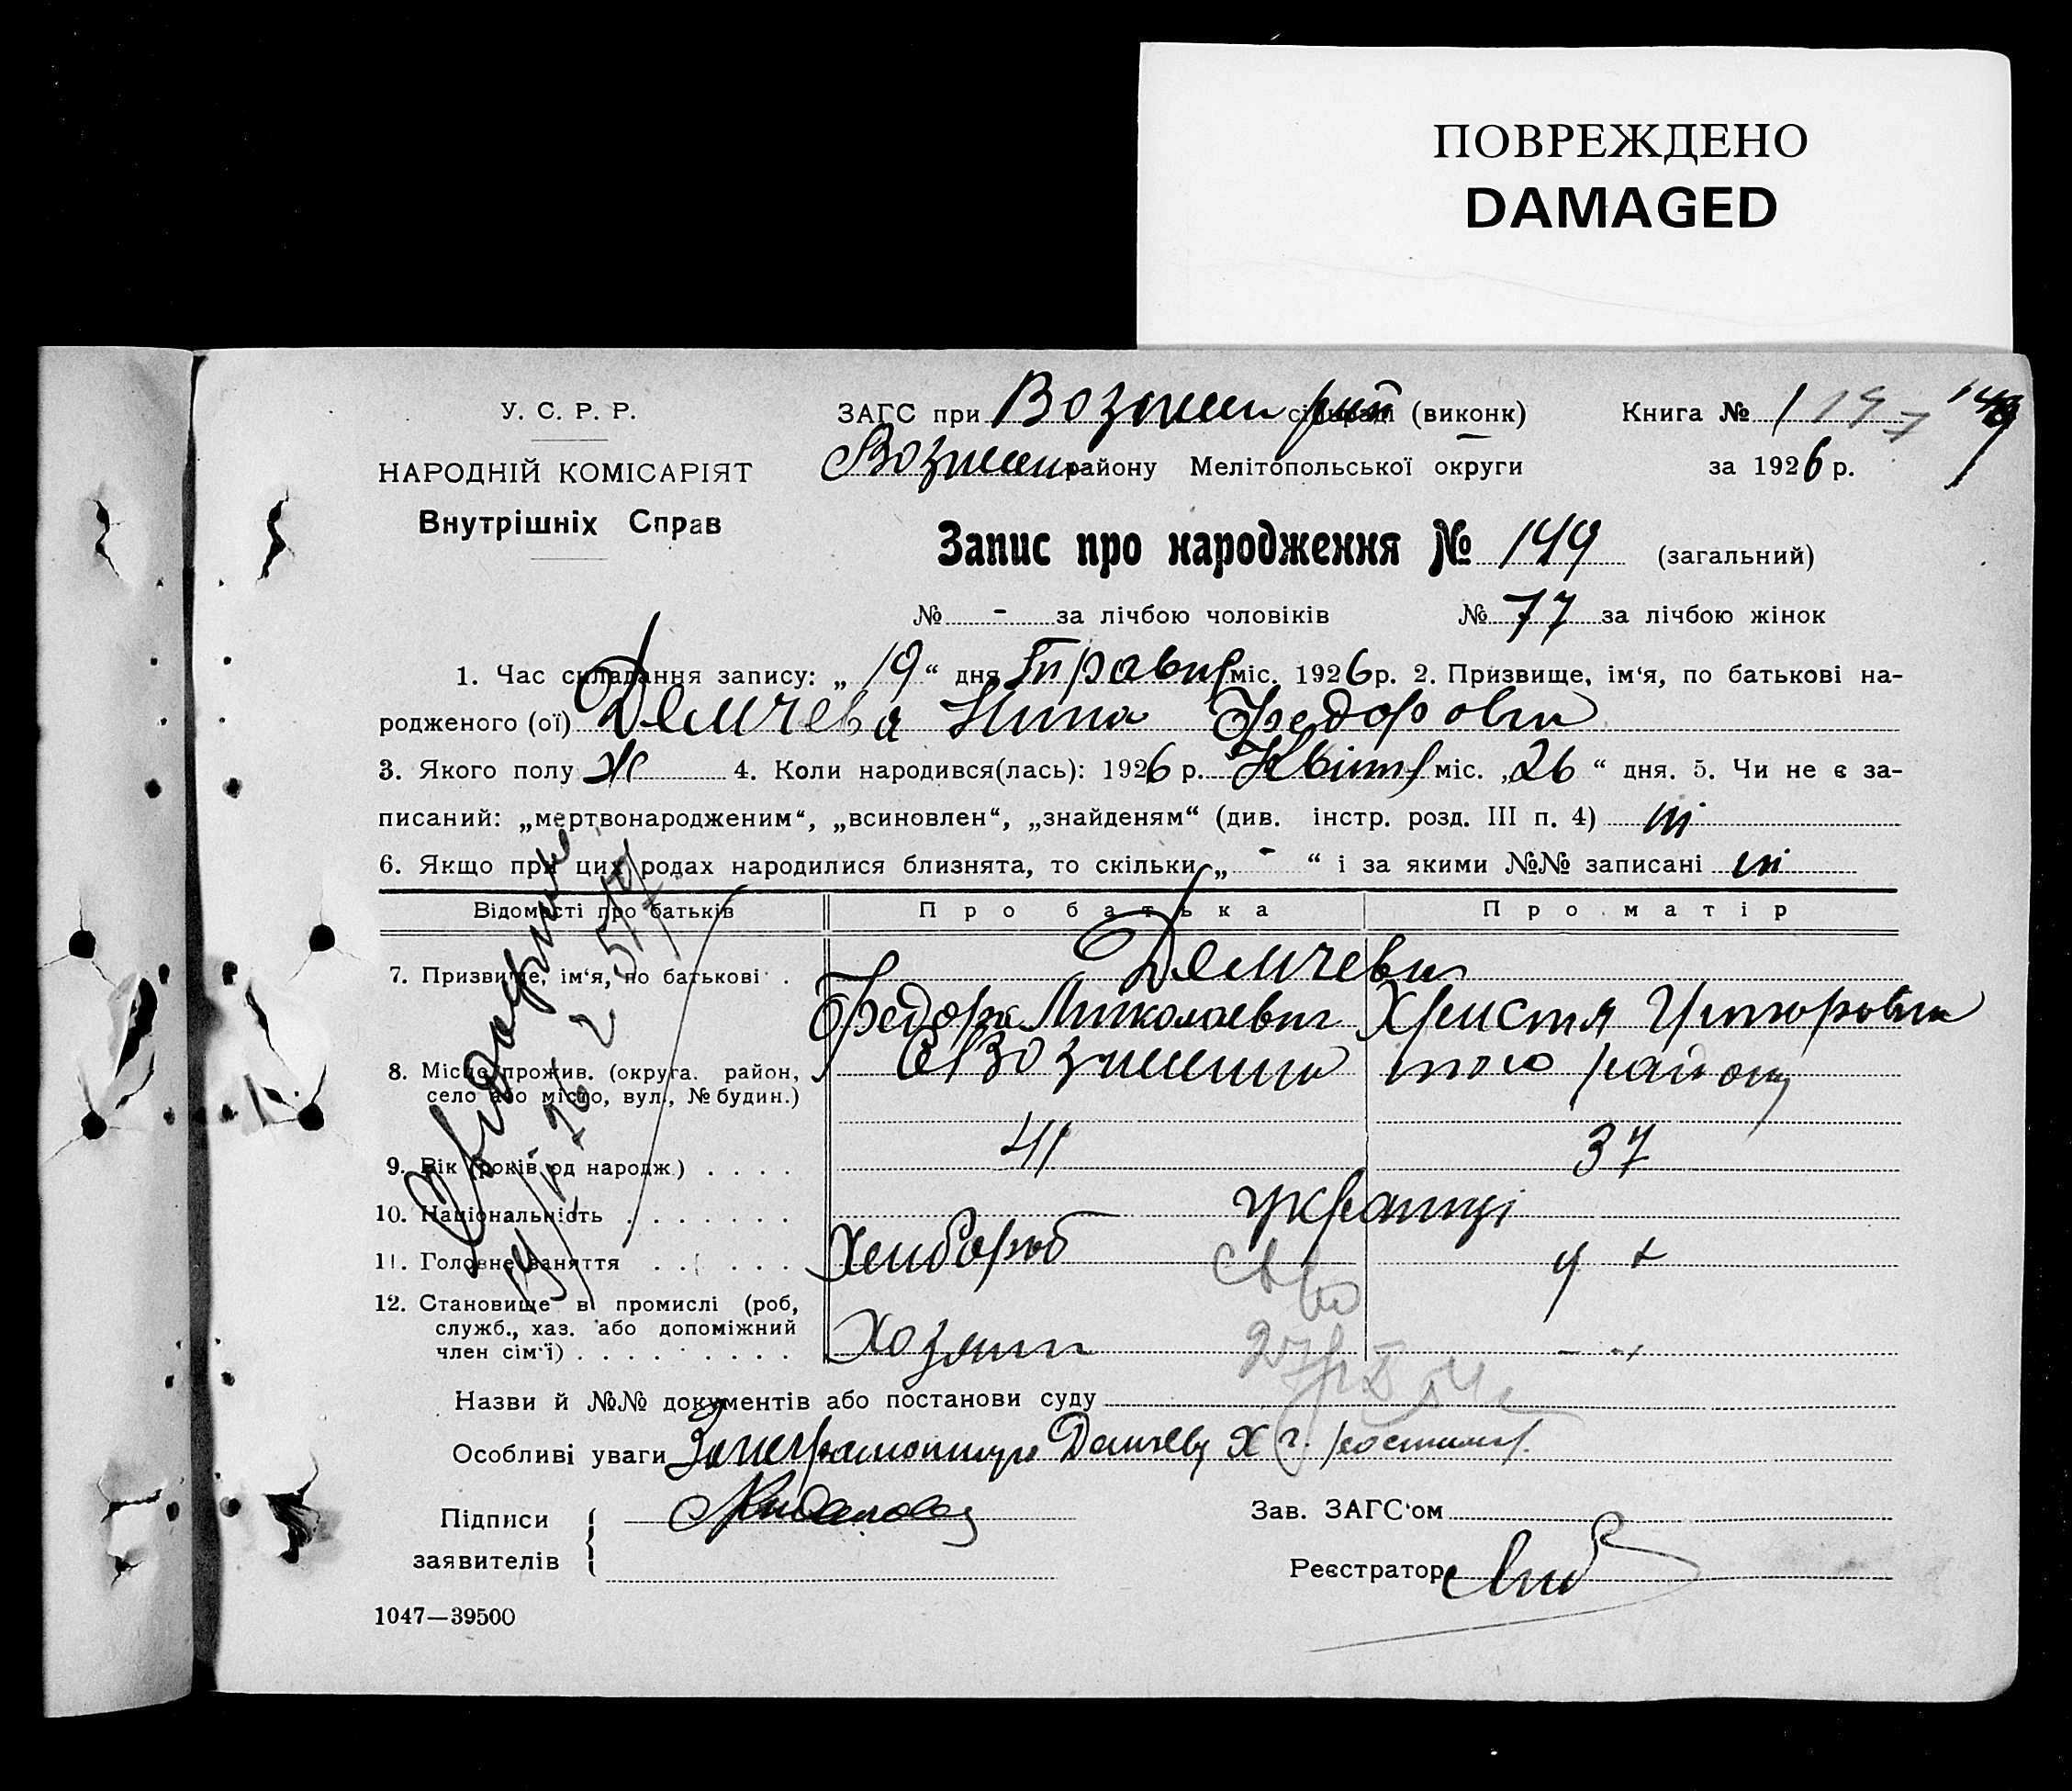 ПОВРЕЖДЕНО
DAMAGED
У. С. Р. Р.
НАРОДНІЙ КОМІСАРІЯТ
Внутрішніх Справ
ЗАГС при Вознесен сільраді (виконк)
Книга № 1
Вознесен району Мелітопольської округи
за 1926 р.
Запис про народження № 149 (загальний)
№ - за лічбою чоловіків № 77 за лічбою жінок
1. Час складання запису: „ 19 “ дня Травня міс. 1926 р. 2. Призвище, ім'я, по батькові на-
родженого (ої) Демчева Нина Федоровна
3. Якого полу Ж 4. Коли народився(лась): 1926 р. Квітня міс. „26 “ дня. 5. Чи не є за-
писаний: „мертвонародженим“, „всиновлен“, „знайденям“ (див. інстр. розд. III п. 4) ні
6. Якщо при цих родах народилися близнята, то скільки „ - “ і за якими №№ записані ні
Відомості про батьків Про батька Про матір
7. Призвище, ім'я, по батькові .
Демчеви
Федор Миколаевич Христя
8. Місце прожив. (округа. район,
село або місто, вул., № будин.)
с Вознесенка того району
9. Вік (років од народж.) . . . . 41 37
10. Національність . . . . . . . українці
11. Головне заняття . . . . . . Хлібороб
12. Становище в промислі (роб,
служб., хаз. або допоміжний
член сім'ї) . . . . . . . . . Хозяин
Назви й №№ документів або постанови суду
Особливі уваги За неграмотную Демчеву Х г.
Підписи
заявителів
Зав. ЗАГС'ом
Реєстратор
1047—39500